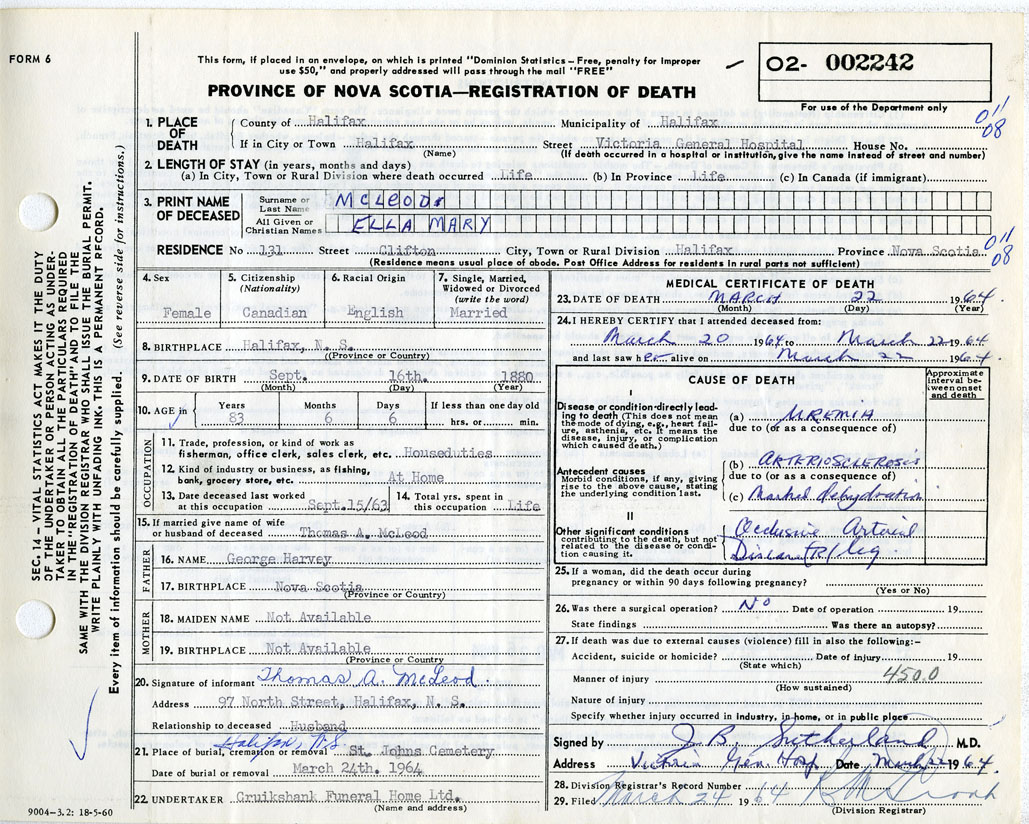 FORM 6
This form, if placed in an envelope, on which is printed "Dominion Statistics – Free, penalty for improper
use $50," and properly addressed will pass through the mail "FREE"
O2- 002242
PROVINCE OF NOVA SCOTIA—REGISTRATION OF DEATH
For use of the Department only
011
08
1. PLACE OF DEATH
County of Halifax Municipality of Halifax
If in City or Town Halifax Street Victoria General Hospital House No.
(Name) (If death occurred in a hospital or institution, give the name instead of street and number)
2. LENGTH OF STAY (in years, months and days)
(a) In City, Town or Rural Division where death occurred Life (b) In Province Life (c) In Canada (if immigrant)
3. PRINT NAME OF DECEASED
Surname or Last Name McLEOD
All Given or Christian Names ELLA MARY
RESIDENCE No 131 Street Clifton City, Town or Rural Division Halifax Province Nova Scotia
011
08
(Residence means usual place of abode. Post Office Address for residents in rural parts not sufficient)
4. Sex
Female
5. Citizenship
(Nationality)
Canadian
6. Racial Origin
English
7. Single, Married,
Widowed or Divorced
(write the word)
Married
8. BIRTHPLACE Halifax, N. S.
(Province or Country)
9. DATE OF BIRTH Sept. 16th. 1880
(Month) (Day) (Year)
10. AGE in
Years Months Days If less than one day old
83 6 6 hrs. or min.
OCCUPATION
11. Trade, profession, or kind of work as
fisherman, office clerk, sales clerk, etc. Houseduties
12. Kind of industry or business, as fishing,
bank, grocery store, etc. At Home
13. Date deceased last worked
at this occupation Sept.15/63
14. Total yrs. spent in
this occupation Life
15. If married give name of wife
or husband of deceased Thomas A. McLeod
FATHER
16. NAME George Harvey
17. BIRTHPLACE Nova Scotia
(Province or Country)
MOTHER
18. MAIDEN NAME Not Available
19. BIRTHPLACE Not Available
(Province or Country
20. Signature of informant Thomas A. McLeod.
Address 97 North Street, Halifax, N. S.
Relationship to deceased Husband
Halifax, NS
21. Place of burial, cremation or removal St. Johns Cemetery
Date of burial or removal March 24th. 1964
22. UNDERTAKER Cruikshank Funeral Home Ltd.
(Name and address)
MEDICAL CERTIFICATE OF DEATH
23. DATE OF DEATH MARCH 22 1964.
(Month) (Day) (Year)
24. I HEREBY CERTIFY that I attended deceased from:
March 20 1964 to March 22 1964
and last saw her alive on March 22 1964
CAUSE OF DEATH
Approximate
interval be-
tween onset
and death
I
Disease or condition directly lead-
ing to death (This does not mean
the mode of dying, e.g., heart fail-
ure, asthenia, etc. It means the
disease, injury, or complication
which caused death.)
(a) UREMIA
due to (or as a consequence of)
Antecedent causes
Morbid conditions, if any, giving
rise to the above cause, stating
the underlying condition last.
(b) ARTERIOSCLEROSIS
due to (or as a consequence of)
(c) Marked dehydration
II
Other significant conditions
contributing to the death, but not
related to the disease or condi-
tion causing it.
Occlusive Arterial
Disease (R) leg
25. If a woman, did the death occur during
pregnancy or within 90 days following pregnancy?
(Yes or No)
26. Was there a surgical operation? NO Date of operation 19
State findings Was there an autopsy?
27. If death was due to external causes (violence) fill in also the following:–
Accident, suicide or homicide? Date of injury 19
(State which)
Manner of injury 450.0
(How sustained)
Nature of injury
Specify whether injury occurred in industry, in home, or in public place
Signed by J. B. Sutherland M.D.
Address Victoria Gen. Hosp. Date March 22 1964.
28. Division Registrar's Record Number
29. Filed March 24 1964
(Division Registrar)
SEC. 14 – VITAL STATISTICS ACT MAKES IT THE DUTY
OF THE UNDERTAKER OR PERSON ACTING AS UNDER-
TAKER TO OBTAIN ALL THE PARTICULARS REQUIRED
IN THE "REGISTRATION OF DEATH" AND TO FILE THE
SAME WITH THE DIVISION REGISTRAR WHO SHALL ISSUE THE BURIAL PERMIT.
WRITE PLAINLY WITH UNFADING INK. THIS IS A PERMANENT RECORD.
Every item of information should be carefully supplied. (See reverse side for instructions.)
9004–3.2: 18-5-60